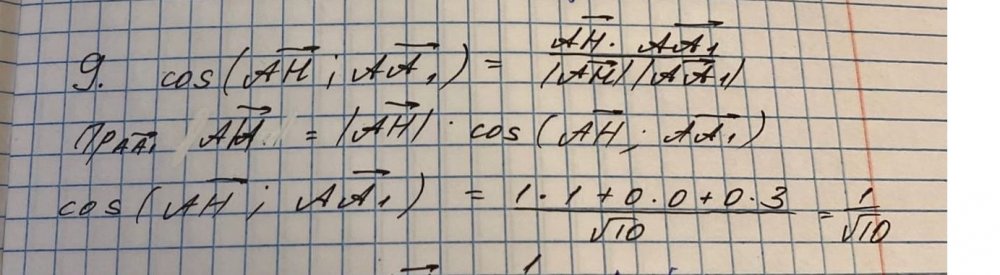 9. cos(AH⃗ ; AA₁⃗) = AH⃗ · AA₁⃗ / |AH⃗| |AA₁⃗|
Пр_AA₁⃗ AH⃗ = |AH⃗| · cos(AH⃗ ; AA₁⃗)
cos(AH⃗ ; AA₁⃗) = 1·1+0·0+0·3 / √10 = 1 / √10